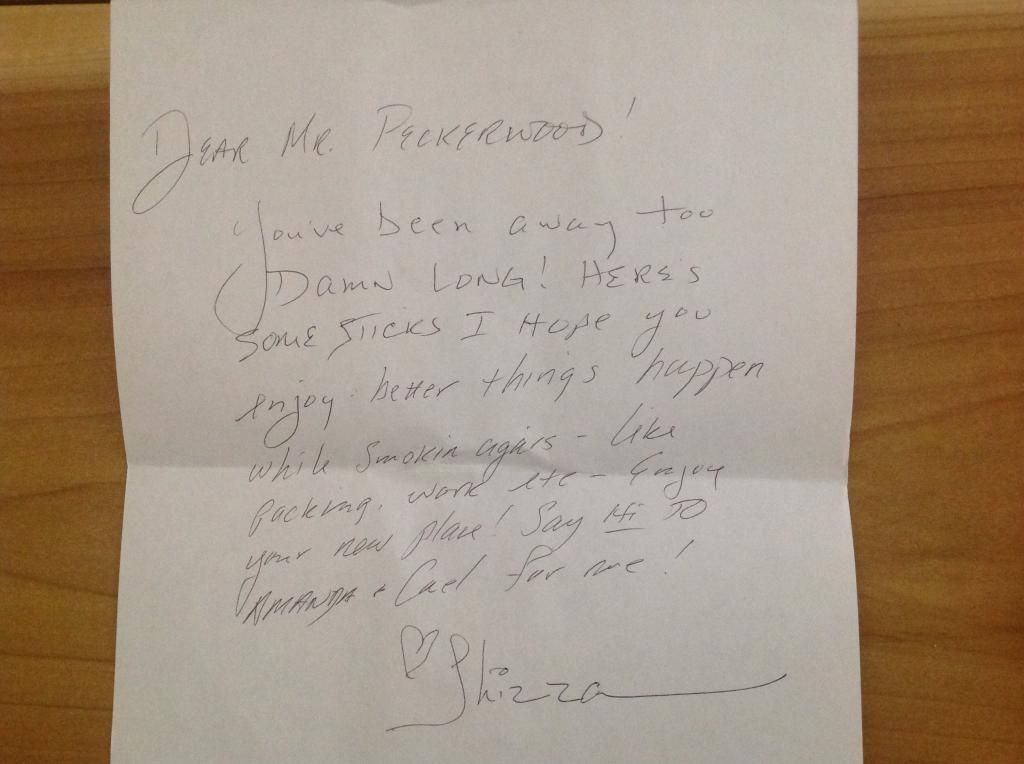 Dear Mr. Peckerwood!
You've been away too
Damn Long! Here's
some sticks I Hope you
enjoy. better things happen
while smokin cigars - like
packing, work etc - Enjoy
your new place! Say Hi To
Amanda + Cael for me!
♡ Shizza